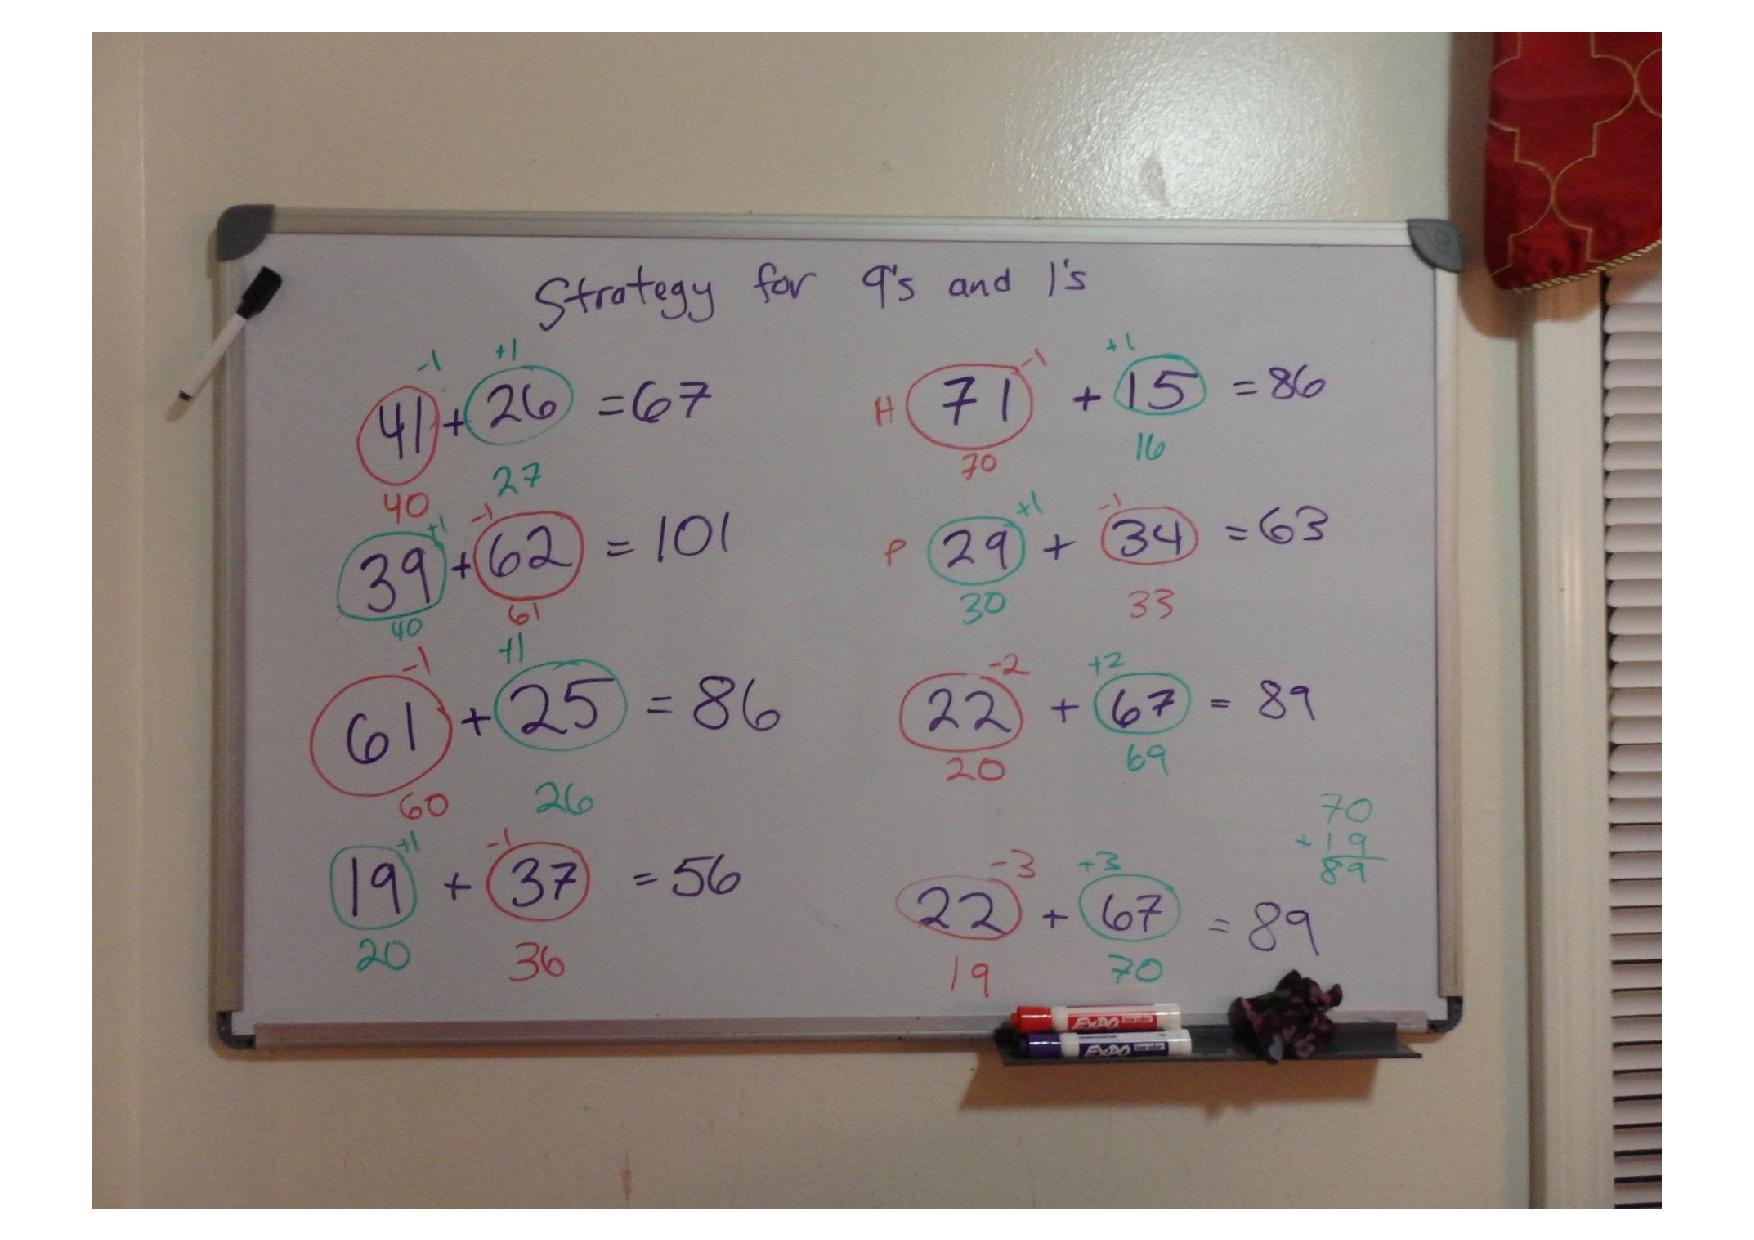 Strategy for 9's and 1's
-1 +1
41 + 26 = 67
40 27
+1 -1
39 + 62 = 101
40 61
-1 +1
61 + 25 = 86
60 26
+1 -1
19 + 37 = 56
20 36
-1 +1
H 71 + 15 = 86
70 16
+1 -1
P 29 + 34 = 63
30 33
-2 +2
22 + 67 = 89
20 69
70
+ 19
89
-3 +3
22 + 67 = 89
19 70
EXPO
EXPO